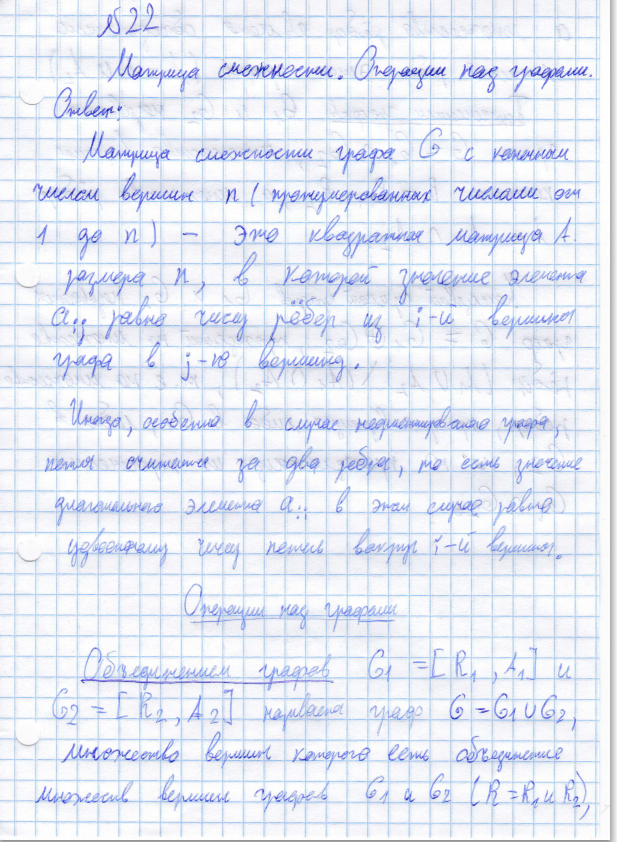 №22
Матрица смежности. Операции над графами.
Ответ:
Матрица смежности графа G с конечным
числом вершин n (пронумерованных числами от
1 до n) – это квадратная матрица A
размера n, в которой значение элемента
aij равно числу рёбер из i-й вершины
графа в j-ю вершину.
Иногда, особенно в случае неориентированного графа,
петля считается за два ребра, то есть значение
диагонального элемента aii в этом случае равно
удвоенному числу петель вокруг i-й вершины.
Операции над графами
Объединением графов G1 = [R1, A1] и
G2 = [R2, A2] называется граф G = G1 ∪ G2,
множество вершин которого есть объединение
множеств вершин графов G1 и G2 (R = R1 ∪ R2),